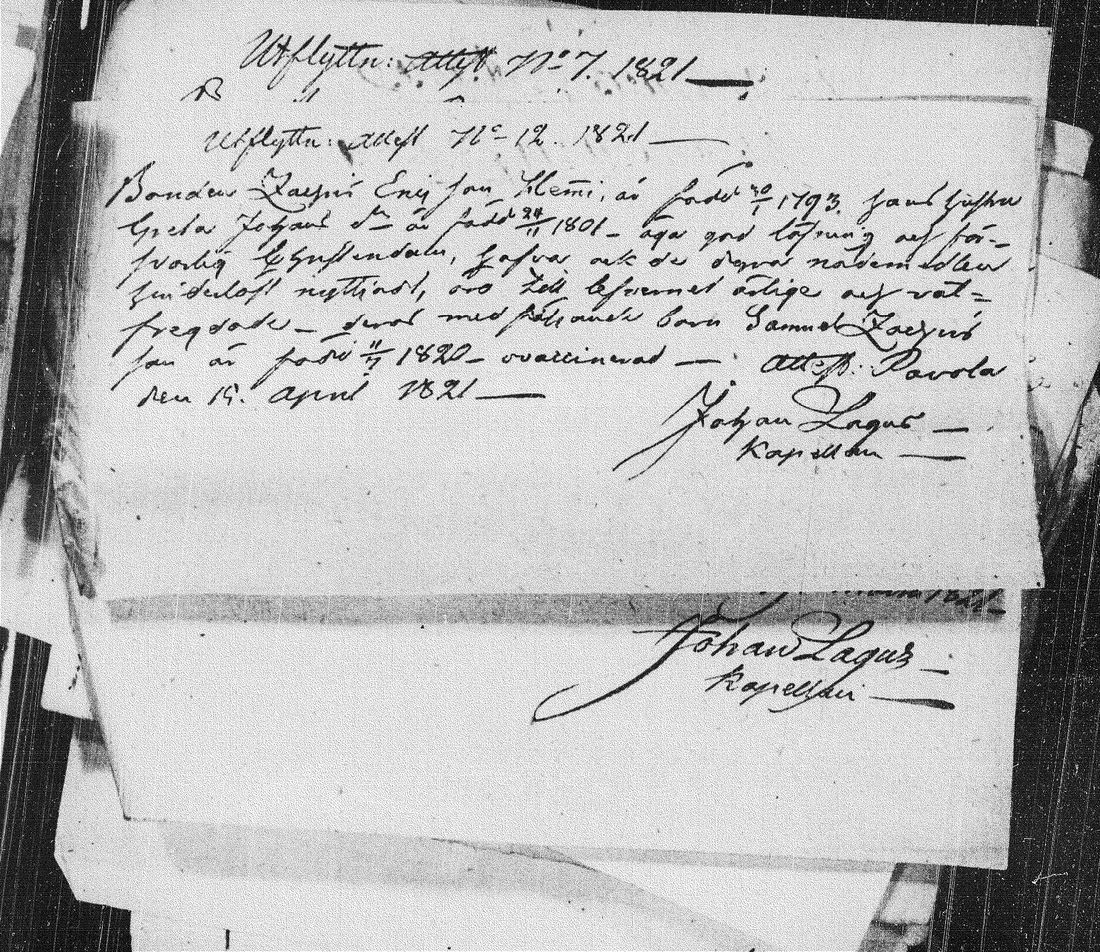 Utflyttn: Attest No 7. 1821
Utflyttn: Attest No 12. 1821
Bonden Zachris Erics son Hemi, är född 30/1 1793. hans hustru
Greta Johans dr är född 24/11 1801 - äga god läsning och för-
svarlig Christendom, hafva ock de dyra nådemedlen
hinderlöst nyttjadt, äro till lefvernet ärlige och väl-
fregdade - deras med barn Samuel Zachris
son är född 11/7 1820 - ovaccinerad - Attest: Pavola
den 15. April 1821
Johan Lagus
Kapellan
1821
Johan Lagus
Kapellan